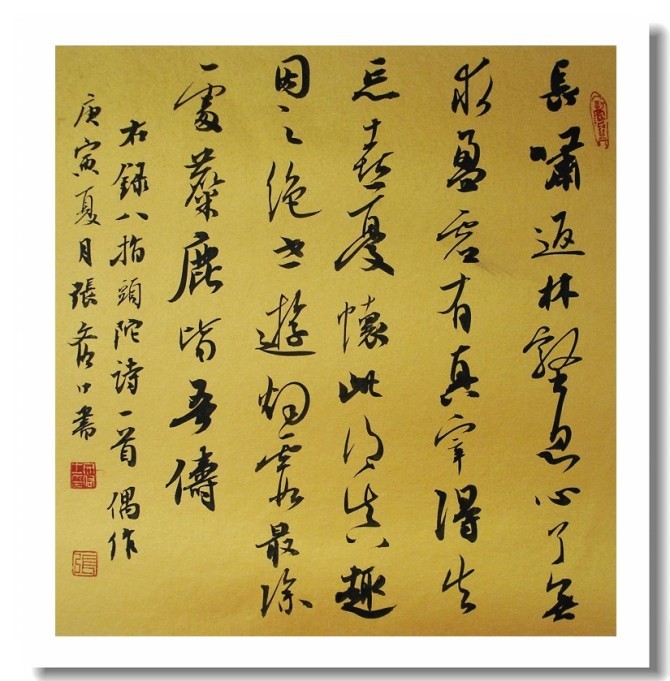 長嘯返林壑息心了無
求盈虛有真宰得失
忘喜憂懷此得真趣
因之絕世遊烟霞最深
處麋鹿皆吾儔
右錄八指頭陀詩一首 偶作
庚寅夏月張口書
張